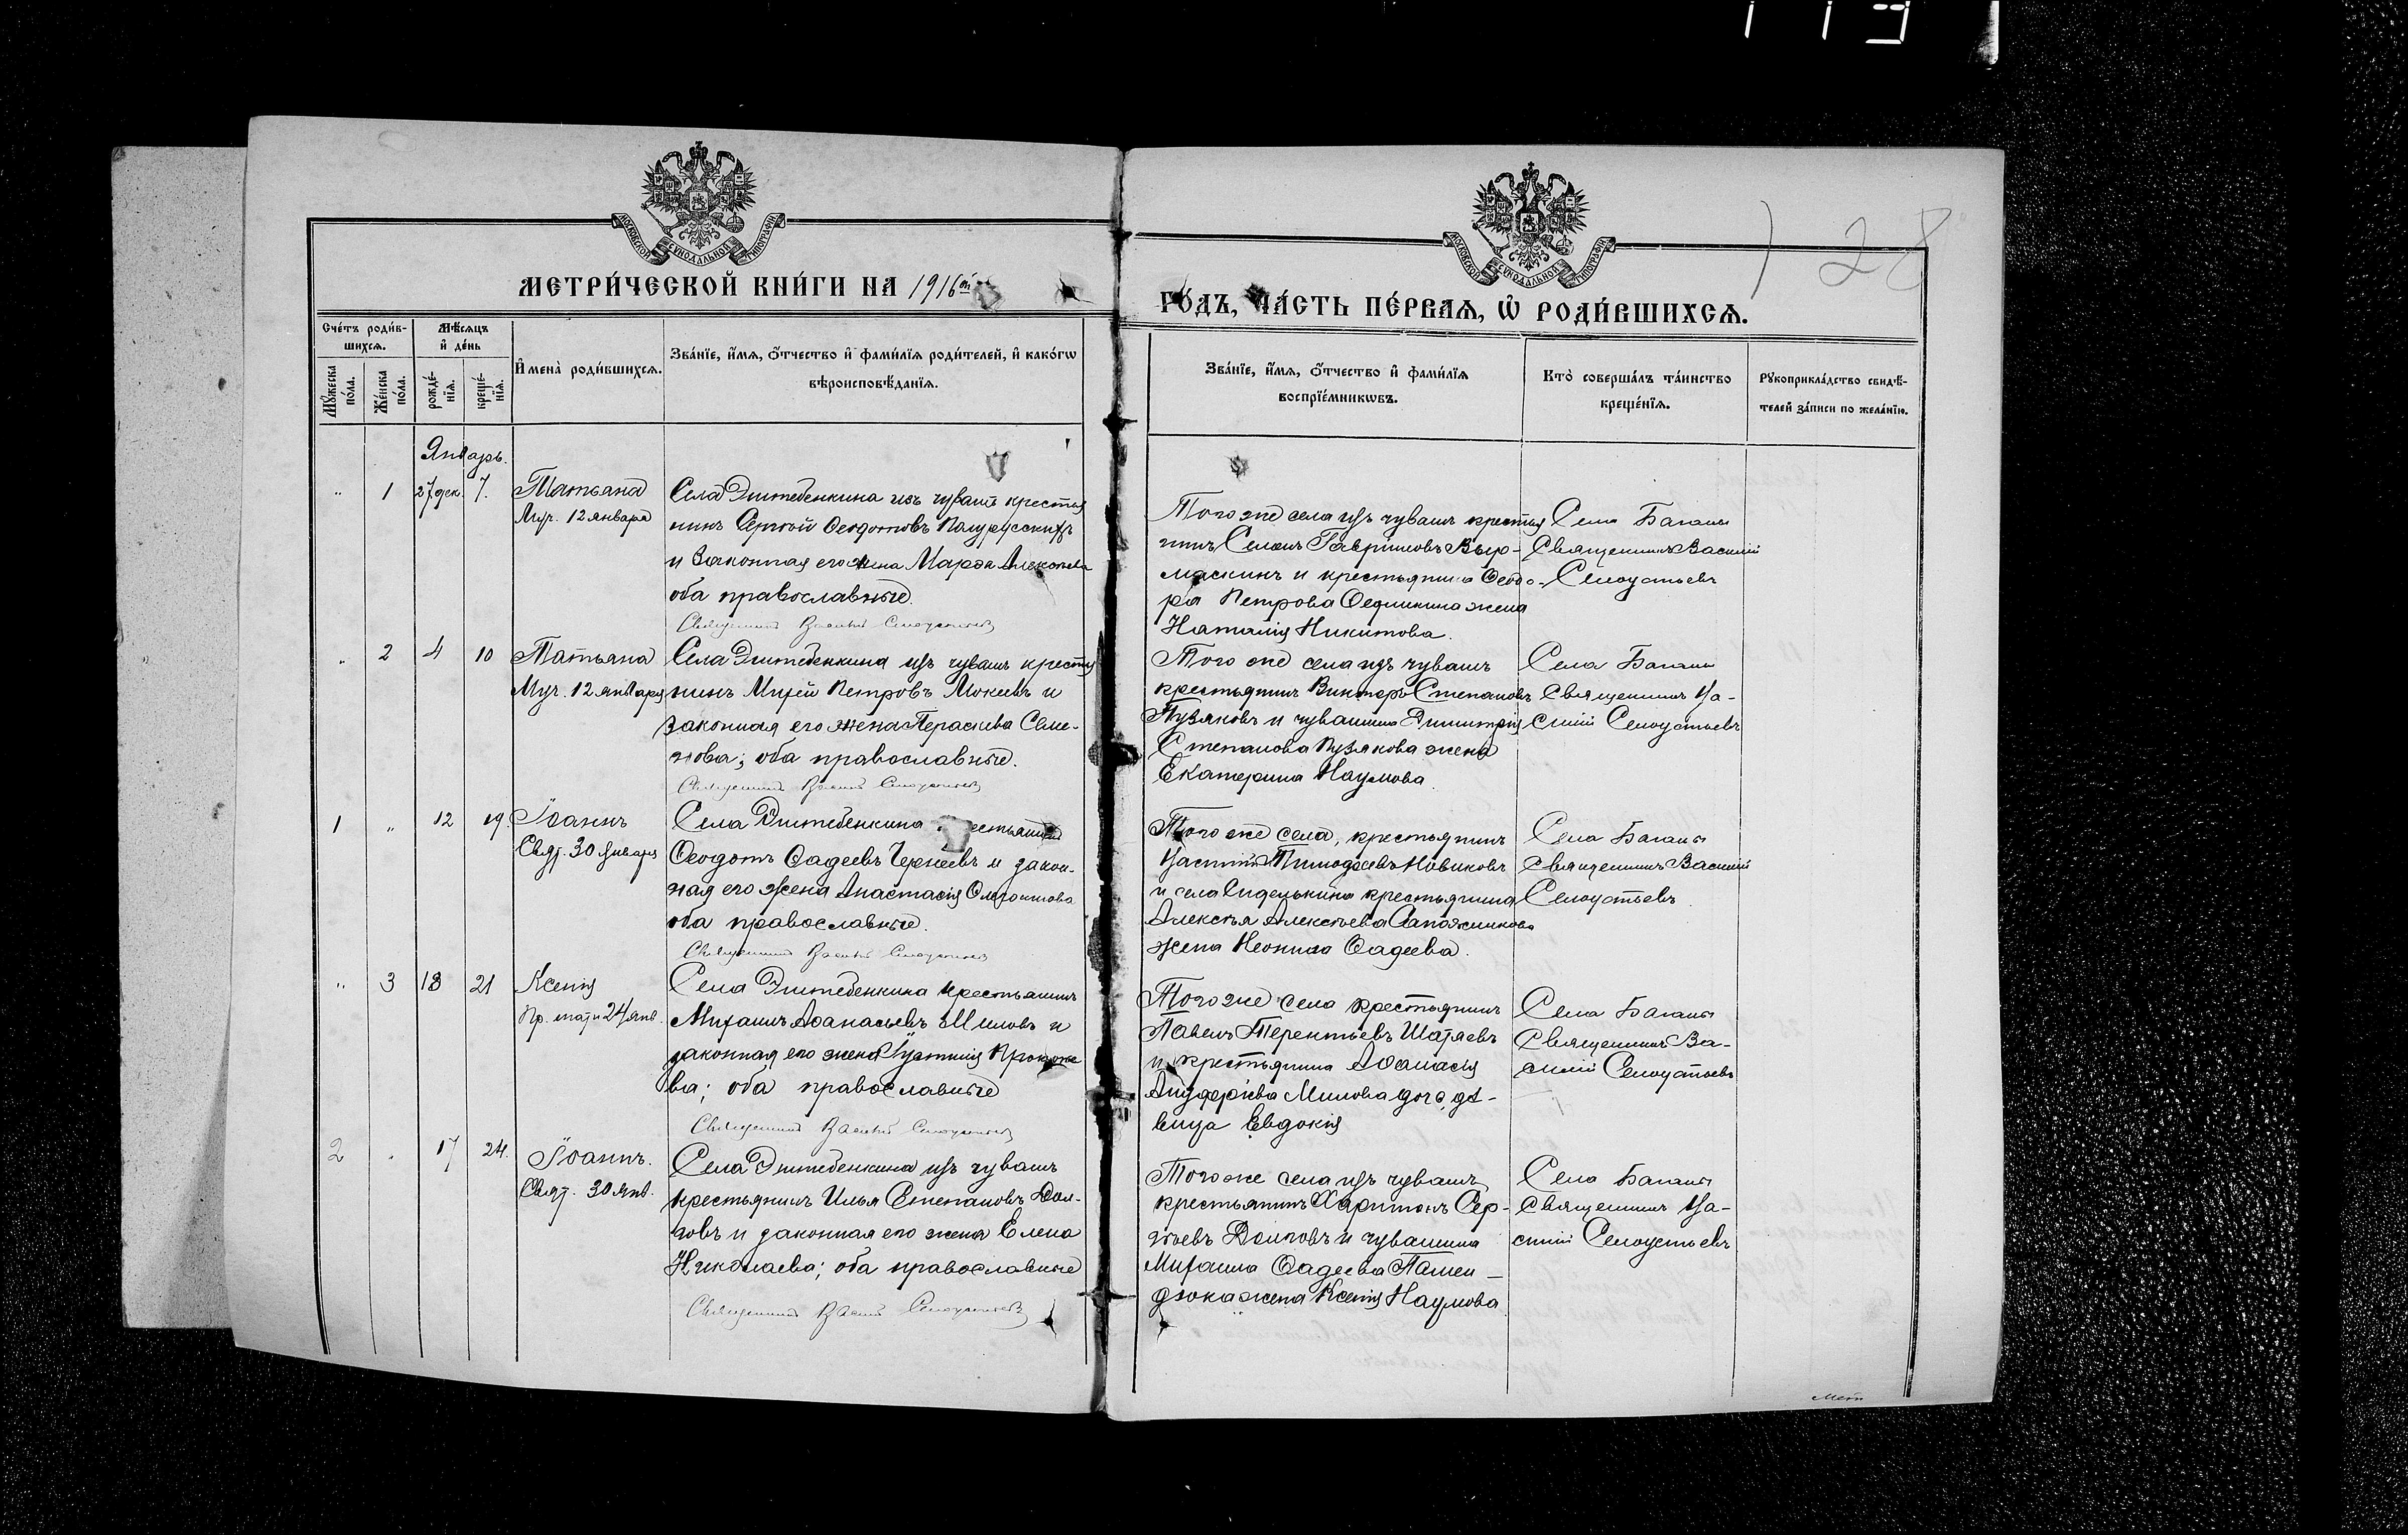 119
128
МОСКОВСКОЙ СѴНОДАЛЬНОЙ ТИПОГРАФІИ
МОСКОВСКОЙ СѴНОДАЛЬНОЙ ТИПОГРАФІИ
МЕТРИ́ЧЕСКОЙ КНИ́ГИ НА 1916ый
ГО́ДЪ, ЧА́СТЬ ПЕ́РВАѦ, Ѡ҆ РОДИ́ВШИХСѦ.
Сче́тъ роди́в-
шихсѧ.
Мѣ́сѧцъ
и҆ де́нь
И҆мена̀ роди́вшихсѧ.
Зва́нїе, и҆́мѧ, ѻ҆́тчество и҆ фами́лїѧ роди́телей, и҆ како́гѡ
вѣроисповѣ́данїѧ.
Мꙋ́жеска
по́ла.
Же́нска
по́ла.
рожде́-
нїѧ.
креще́-
нїѧ.
Зва́нїе, и҆́мѧ, ѻ҆́тчество и҆ фами́лїѧ
воспрїе́мникѡвъ.
Кто̀ соверша́лъ та́инство
креще́нїѧ.
Рꙋкоприкла́дство свидѣ́-
телей за́писи по жела́нїю.
Январь.
" 1 27 дек. 7. Татьяна
Муч. 12 января
Села Эштебенкина изъ чувашъ крестья
нинъ Сергѣй Ѳеодотовъ Полурусскихъ
и законная его жена Марѳа Алексѣева
оба православные.
Священникъ Василий Сеноустьевъ
Того же села изъ чувашъ крестья
нинъ Семенъ Гавріиловъ Выр-
маскинъ и крестьянина Ѳеодо-
ра Петрова жена
Наталія Никитова.
Села Баганы
Священникъ Василій
Сеноустьевъ
" 2 4 10 Татьяна
Муч. 12 января
Села Эштебенкина изъ чувашъ крестья
нинъ Михей Петровъ Мокеевъ и
законная его жена Параскива Семе-
нова; оба православные.
Священникъ Василий Сеноустьевъ
Того же села изъ чувашъ
крестьянинъ Викторъ Степановъ
Пузяковъ и чувашина Димитрія
Степанова Пузякова жена
Екатерина Наумова.
Села Баганы
Священникъ Ва-
силій Сеноустьевъ
1 " 12 19. Іоаннъ
Свят. 30 января
Села Эштебенкина крестьянинъ
Ѳеодотъ Ѳадеевъ и закон-
ная его жена Анастасія
оба православные.
Священникъ Василий Сеноустьевъ
Того же села, крестьянинъ
Василій Тимоѳеевъ Новиковъ
и села Сиделькина крестьянина
Алексѣя Алексѣева Сапожникова
жена Неонила Ѳадеева.
Села Баганы
Священникъ Василій
Сеноустьевъ
" 3 18 21 Ксенія
Пр. мат. 24 янв.
Села Эштебенкина крестьянинъ
Михаилъ Аѳанасьевъ Миловъ и
законная его жена Іустинія Прокопье
ва; оба православные
Священникъ Василий Сеноустьевъ
Того же села крестьянинъ
Павелъ Терентьевъ Шатяевъ
и крестьянина Аѳанасія
Милова дочь, дѣ-
вица Евдокія
Села Баганы
Священникъ Ва-
силій Сеноустьевъ
2 " 17 24. Іоаннъ.
Свят. 30 янв.
Села Эштебенкина изъ чувашъ
крестьянинъ Илья Степановъ Дол-
говъ и законная его жена Елена
Николаева; оба православные
Священникъ Василий Сеноустьевъ
Того же села изъ чувашъ
крестьянинъ Харитонъ Сер-
гѣевъ Долговъ и чувашина
Михаила Ѳадеева Памен-
дюка жена Ксенія Наумова
Села Баганы
Священникъ Ва-
силій Сеноустьевъ